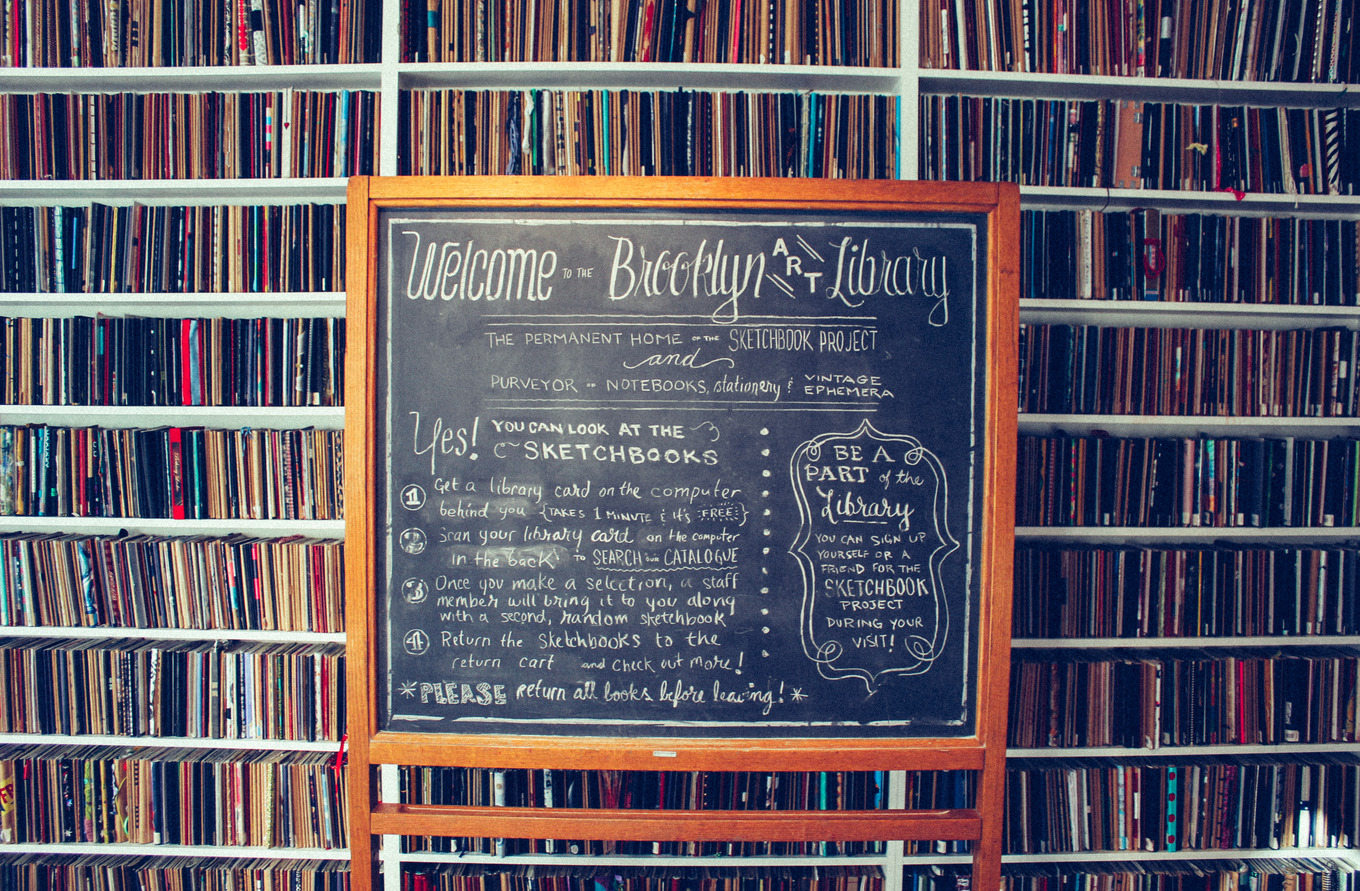 Welcome TO THE Brooklyn ART Library
THE PERMANENT HOME OF THE SKETCHBOOK PROJECT
and
PURVEYOR OF NOTEBOOKS, stationery & VINTAGE EPHEMERA
Yes! YOU CAN LOOK AT THE
SKETCHBOOKS
1 Get a library card on the computer
behind you {TAKES 1 MINUTE & it's FREE!}
2 Scan your library card on the computer
in the back TO SEARCH OUR CATALOGUE
3 Once you make a selection, a staff
member will bring it to you along
with a second, random sketchbook
4 Return the Sketchbooks to the
return cart and check out more!
*PLEASE return all books before leaving!*
BE A
PART of the
Library
YOU CAN SIGN UP
YOURSELF OR A
FRIEND FOR THE
SKETCHBOOK
PROJECT
DURING YOUR
VISIT!